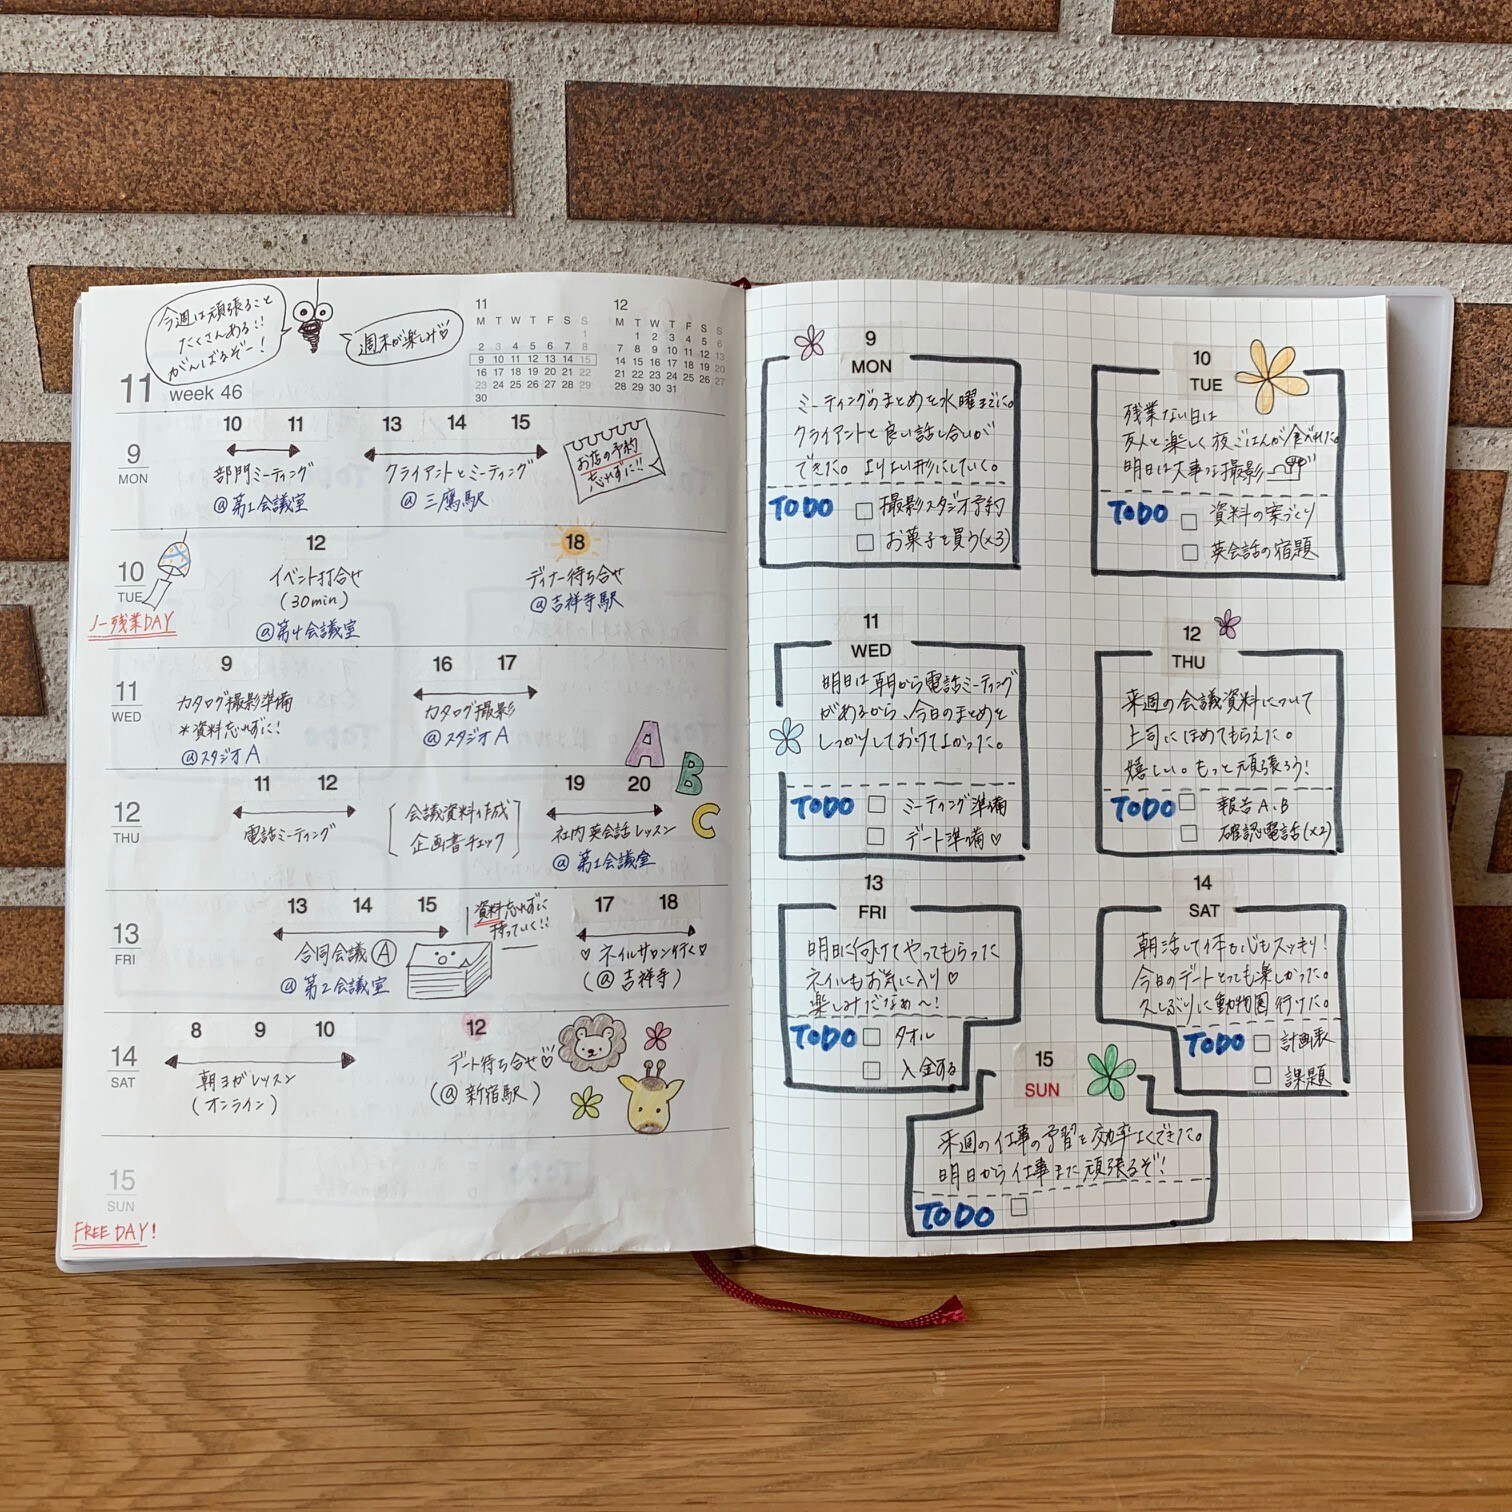 今週は頑張ること
たくさんある!!
がんばるぞー!
週末が楽しみ♡
11 week 46
11
M T W T F S S
1
2 3 4 5 6 7 8
9 10 11 12 13 14 15
16 17 18 19 20 21 22
23 24 25 26 27 28 29
30
12
M T W T F S S
1 2 3 4 5 6
7 8 9 10 11 12 13
14 15 16 17 18 19 20
21 22 23 24 25 26 27
28 29 30 31
9
MON
10 11
部門ミーティング
@第1会議室
13 14 15
クライアントとミーティング
@三鷹駅
お店の予約
忘れずに!!
10
TUE
ノー残業DAY
12
イベント打合せ
(30min)
@第4会議室
18
ディナー待ち合せ
@吉祥寺駅
11
WED
9
カタログ撮影準備
*資料忘れずに!
@スタジオA
16 17
カタログ撮影
@スタジオA
A
B
C
12
THU
11 12
電話ミーティング
会議資料作成
企画書チェック
19 20
社内英会話レッスン
@第1会議室
13
FRI
13 14 15
合同会議Ⓐ
@第2会議室
資料忘れずに
持っていく!!
17 18
♡ネイルサロン行く♡
(@吉祥寺)
14
SAT
8 9 10
朝ヨガレッスン
(オンライン)
12
デート待ち合せ♡
(@新宿駅)
15
SUN
FREE DAY!
9
MON
ミーティングのまとめを水曜までに。
クライアントと良い話し合いが
できた。よりよい形にしていく。
TODO
□ 撮影スタジオ予約
□ お菓子を買う(×3)
10
TUE
残業ない日は
友人と楽しく夜ごはんが食べれた。
明日は大事な撮影
TODO
□ 資料の案づくり
□ 英会話の宿題
11
WED
明日は朝から電話ミーティング
があるから、今日のまとめを
しっかりしておけてよかった。
TODO
□ ミーティング準備
□ デート準備♡
12
THU
来週の会議資料について
上司にほめてもらえた。
嬉しい。もっと頑張ろう!
TODO
□ 報告A、B
□ 確認電話(×2)
13
FRI
明日に向けてやってもらった
ネイルもお気に入り♡
楽しみだなぁ〜!
TODO
□ タオル
□ 入金する
14
SAT
朝活して体も心もスッキリ!
今日のデートとっても楽しかった。
久しぶりに動物園行けた。
TODO
□ 計画表
□ 課題
15
SUN
来週の仕事の予習を効率よくできた。
明日から仕事また頑張るぞ!
TODO
□